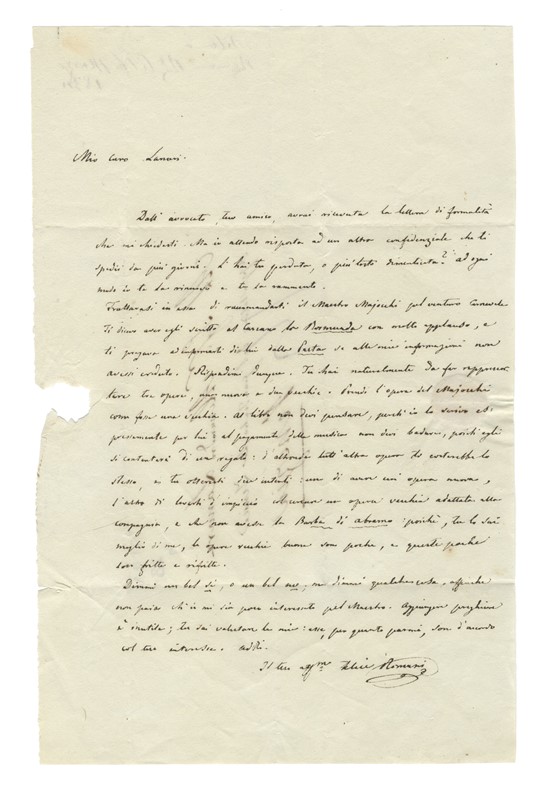 Mio caro Lanari.
Dall' avvocato, tuo amico, avrai ricevuta la lettera di formalità
che mi chiedesti. Ma io attendo risposta ad un altra confidenziale che ti
spedii da più giorni. L' hai tu perduta, o piuttosto dimenticata? Ad ogni
modo io te la rinnovo e te la rammento.
Trattavasi in essa di raccomandarti il Maestro Majocchi pel venturo Carnevale
Ti dissi aver egli scritto al Carcano la Rosmunda con molto applauso, e
ti pregava ad informarti di lui dalla Pasta se alle mie informazioni non
avessi creduto. Rispondimi dunque. Tu hai naturalmente da far rappresen-
tare tre opere, una nuova e due vecchie. Prendi l'opera del Majocchi
come fosse una vecchia. Al libro non devi pensare, perch' io lo scrivo es-
pressamente per lui: al pagamento della musica non devi badare, poichè egli
si contenterà di un regalo: d' altronde tutt' altra opera ti costerebbe lo
stesso, e tu otterresti due intenti: uno di aver un' opera nuova,
l' altro di levarti d' impiccio col cercare un opera vecchia adattata alla
compagnia, e che non avesse la Barba di Abramo: poichè, tu lo sai
meglio di me, le opere vecchie buone son poche, e queste poche
son fritte e rifritte.
Dimmi un bel sì, o un bel no; ma dimmi qualche cosa, affinchè
non paja ch' io mi sia poco interessato pel Maestro. Aggiunger preghiere
è inutile; tu sai valutare le mie: esse, per quanto parmi, son d'accordo
col tuo interesse. Addio.
Il tuo aff.mo Felice Romani